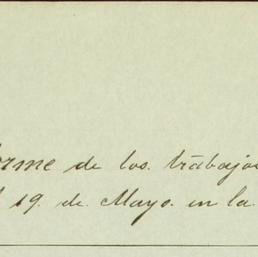 orme de los. trabajos
l 19. de. Mayo. en la.